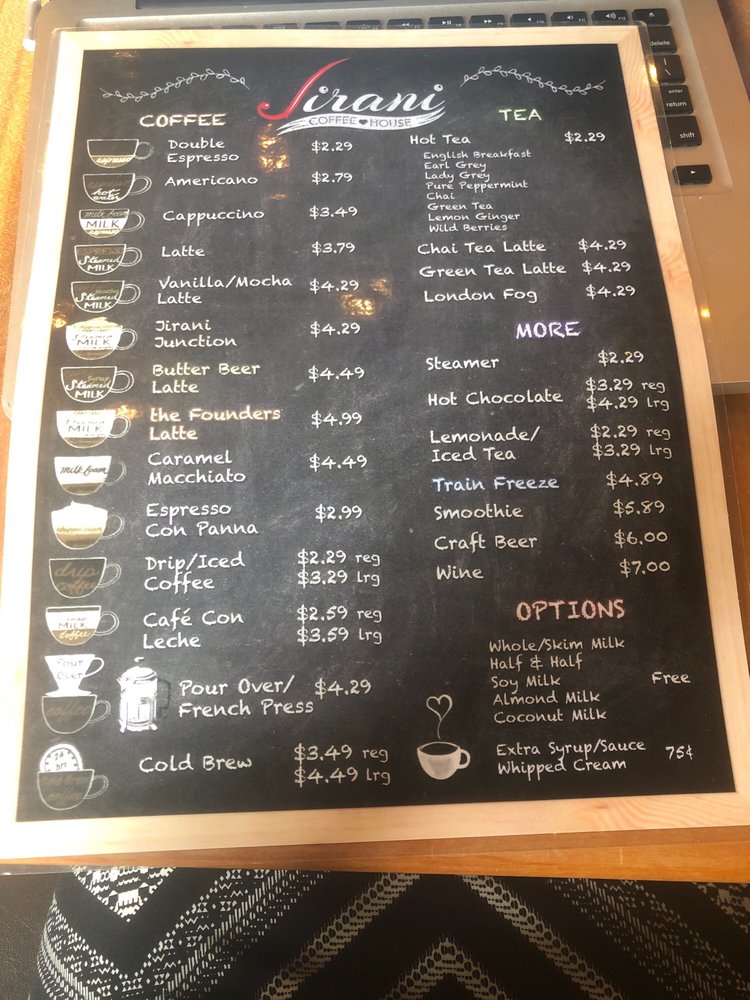 Jirani
COFFEE HOUSE
COFFEE
Double $2.29
Espresso
Americano $2.79
Cappuccino $3.49
Latte $3.79
Vanilla/Mocha $4.29
Latte
Jirani $4.29
Junction
Butter Beer $4.49
Latte
the Founders $4.99
Latte
Caramel $4.49
Macchiato
Espresso $2.99
Con Panna
Drip/Iced $2.29 reg
Coffee $3.29 lrg
Café Con $2.59 reg
Leche $3.59 lrg
Pour Over/ $4.29
French Press
Cold Brew $3.49 reg
$4.49 lrg
espresso
hot
water
milk foam
MILK
espresso
ESPRESSO
Steamed
MILK
Mocha
Steamed
MILK
MILK
Syrup
Steamed
MILK
MILK
milk foam
drip
coffee
MILK
coffee
Pour
Over
coffee
24
hr
TEA
Hot Tea $2.29
English Breakfast
Earl Grey
Lady Grey
Pure Peppermint
Chai
Green Tea
Lemon Ginger
Wild Berries
Chai Tea Latte $4.29
Green Tea Latte $4.29
London Fog $4.29
MORE
Steamer $2.29
Hot Chocolate $3.29 reg
$4.29 lrg
Lemonade/ $2.29 reg
Iced Tea $3.29 lrg
Train Freeze $4.89
Smoothie $5.89
Craft Beer $6.00
Wine $7.00
OPTIONS
Whole/Skim Milk
Half & Half
Soy Milk Free
Almond Milk
Coconut Milk
Extra Syrup/Sauce 75¢
Whipped Cream
delete
enter
return
shift